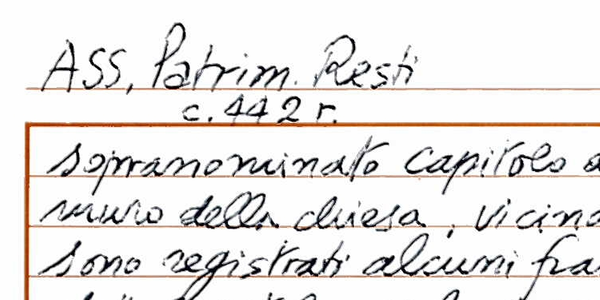 ASS, Patrim. Resti
c. 442 r.
sopranominato capitolo
muro della chiesa, vicino
sono registrati alcuni